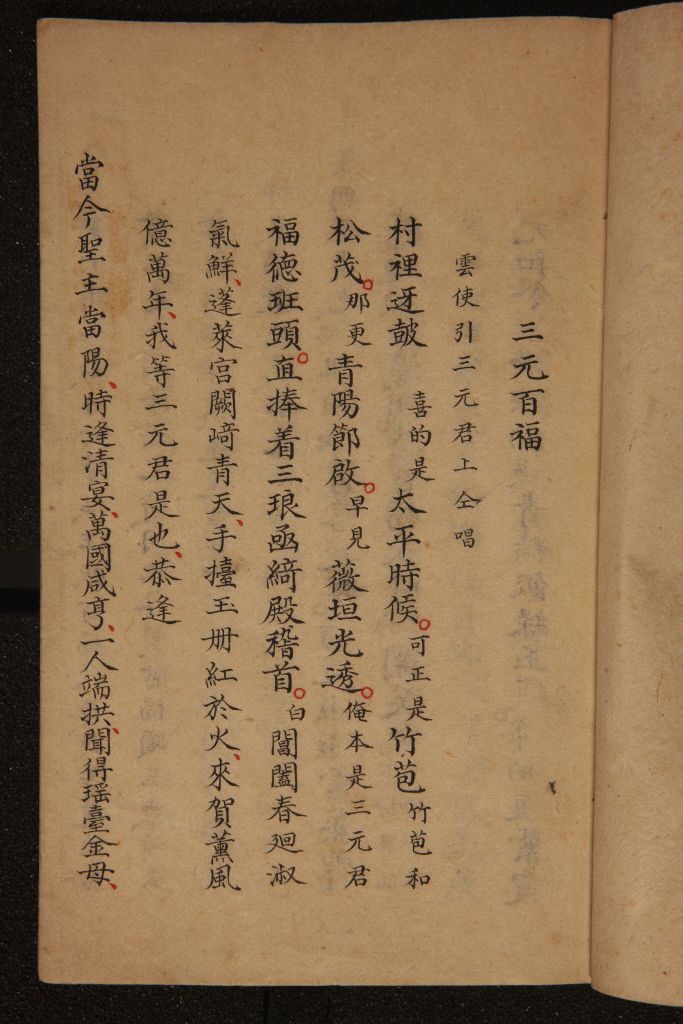 三元百福
雲使引三元君上仝唱
村裡迓皷 喜的是太平時候。可正是竹苞竹苞和
松茂。那更青陽節啟。早見薇垣光透。俺本是三元君
福德班頭。直捧着三琅函綺殿稽首。白閶闔春迴淑
氣鮮、蓬萊宫闕﨑青天、手擡玉册紅於火、來賀薰風
億萬年、我等三元君是也、恭逢
當今聖主當陽、時逢清宴、萬國咸亨、一人端拱、聞得瑶臺金母、